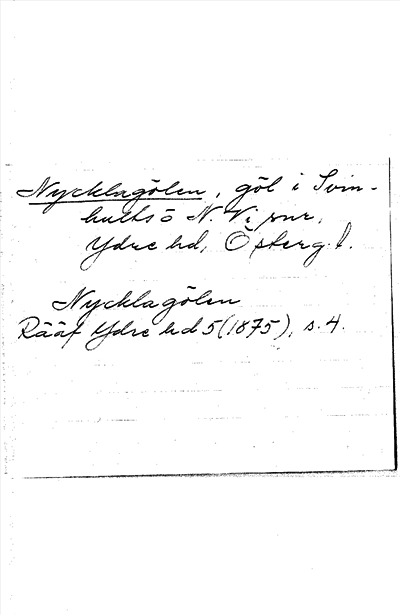 Nycklagölen, göl i Svin-
hults o N. Vi snr,
Ydre hd, Österg. l.
Nycklagölen
Rääf Ydre hd 5 (1875), s. 4.